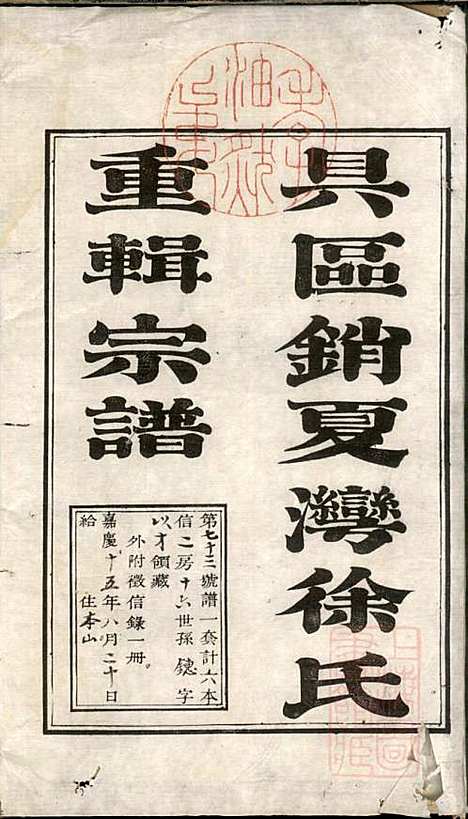 具區銷夏灣徐氏
重輯宗譜
第七十三號譜一套計六本
信二房十六世孫 字
以才領藏
外附徵信錄一冊。
嘉慶十五年八月二十日
給 住本山